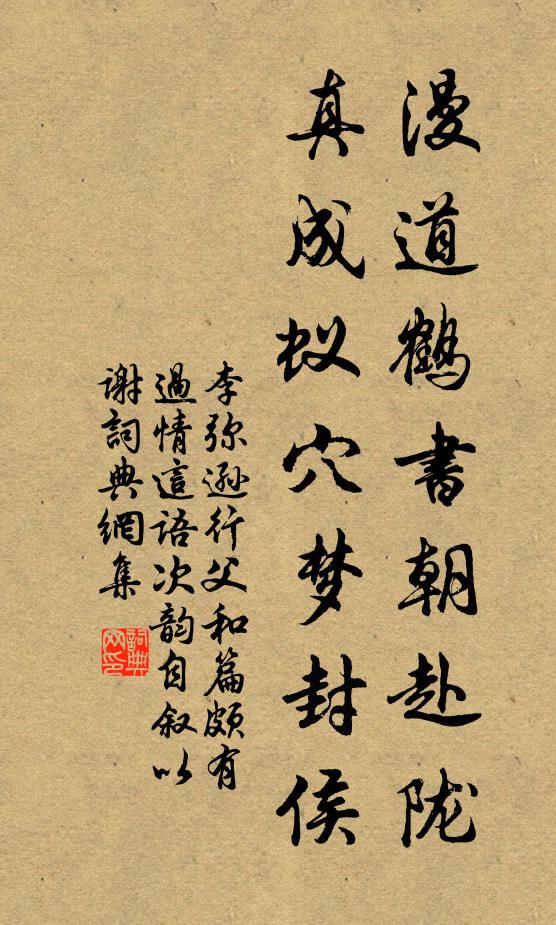 漫道鹤書朝赴陇
真成蚁穴梦封侯
李弥逊行父和篇頗有
過情這語次韵自叙以
谢詞典網集
詞典网印